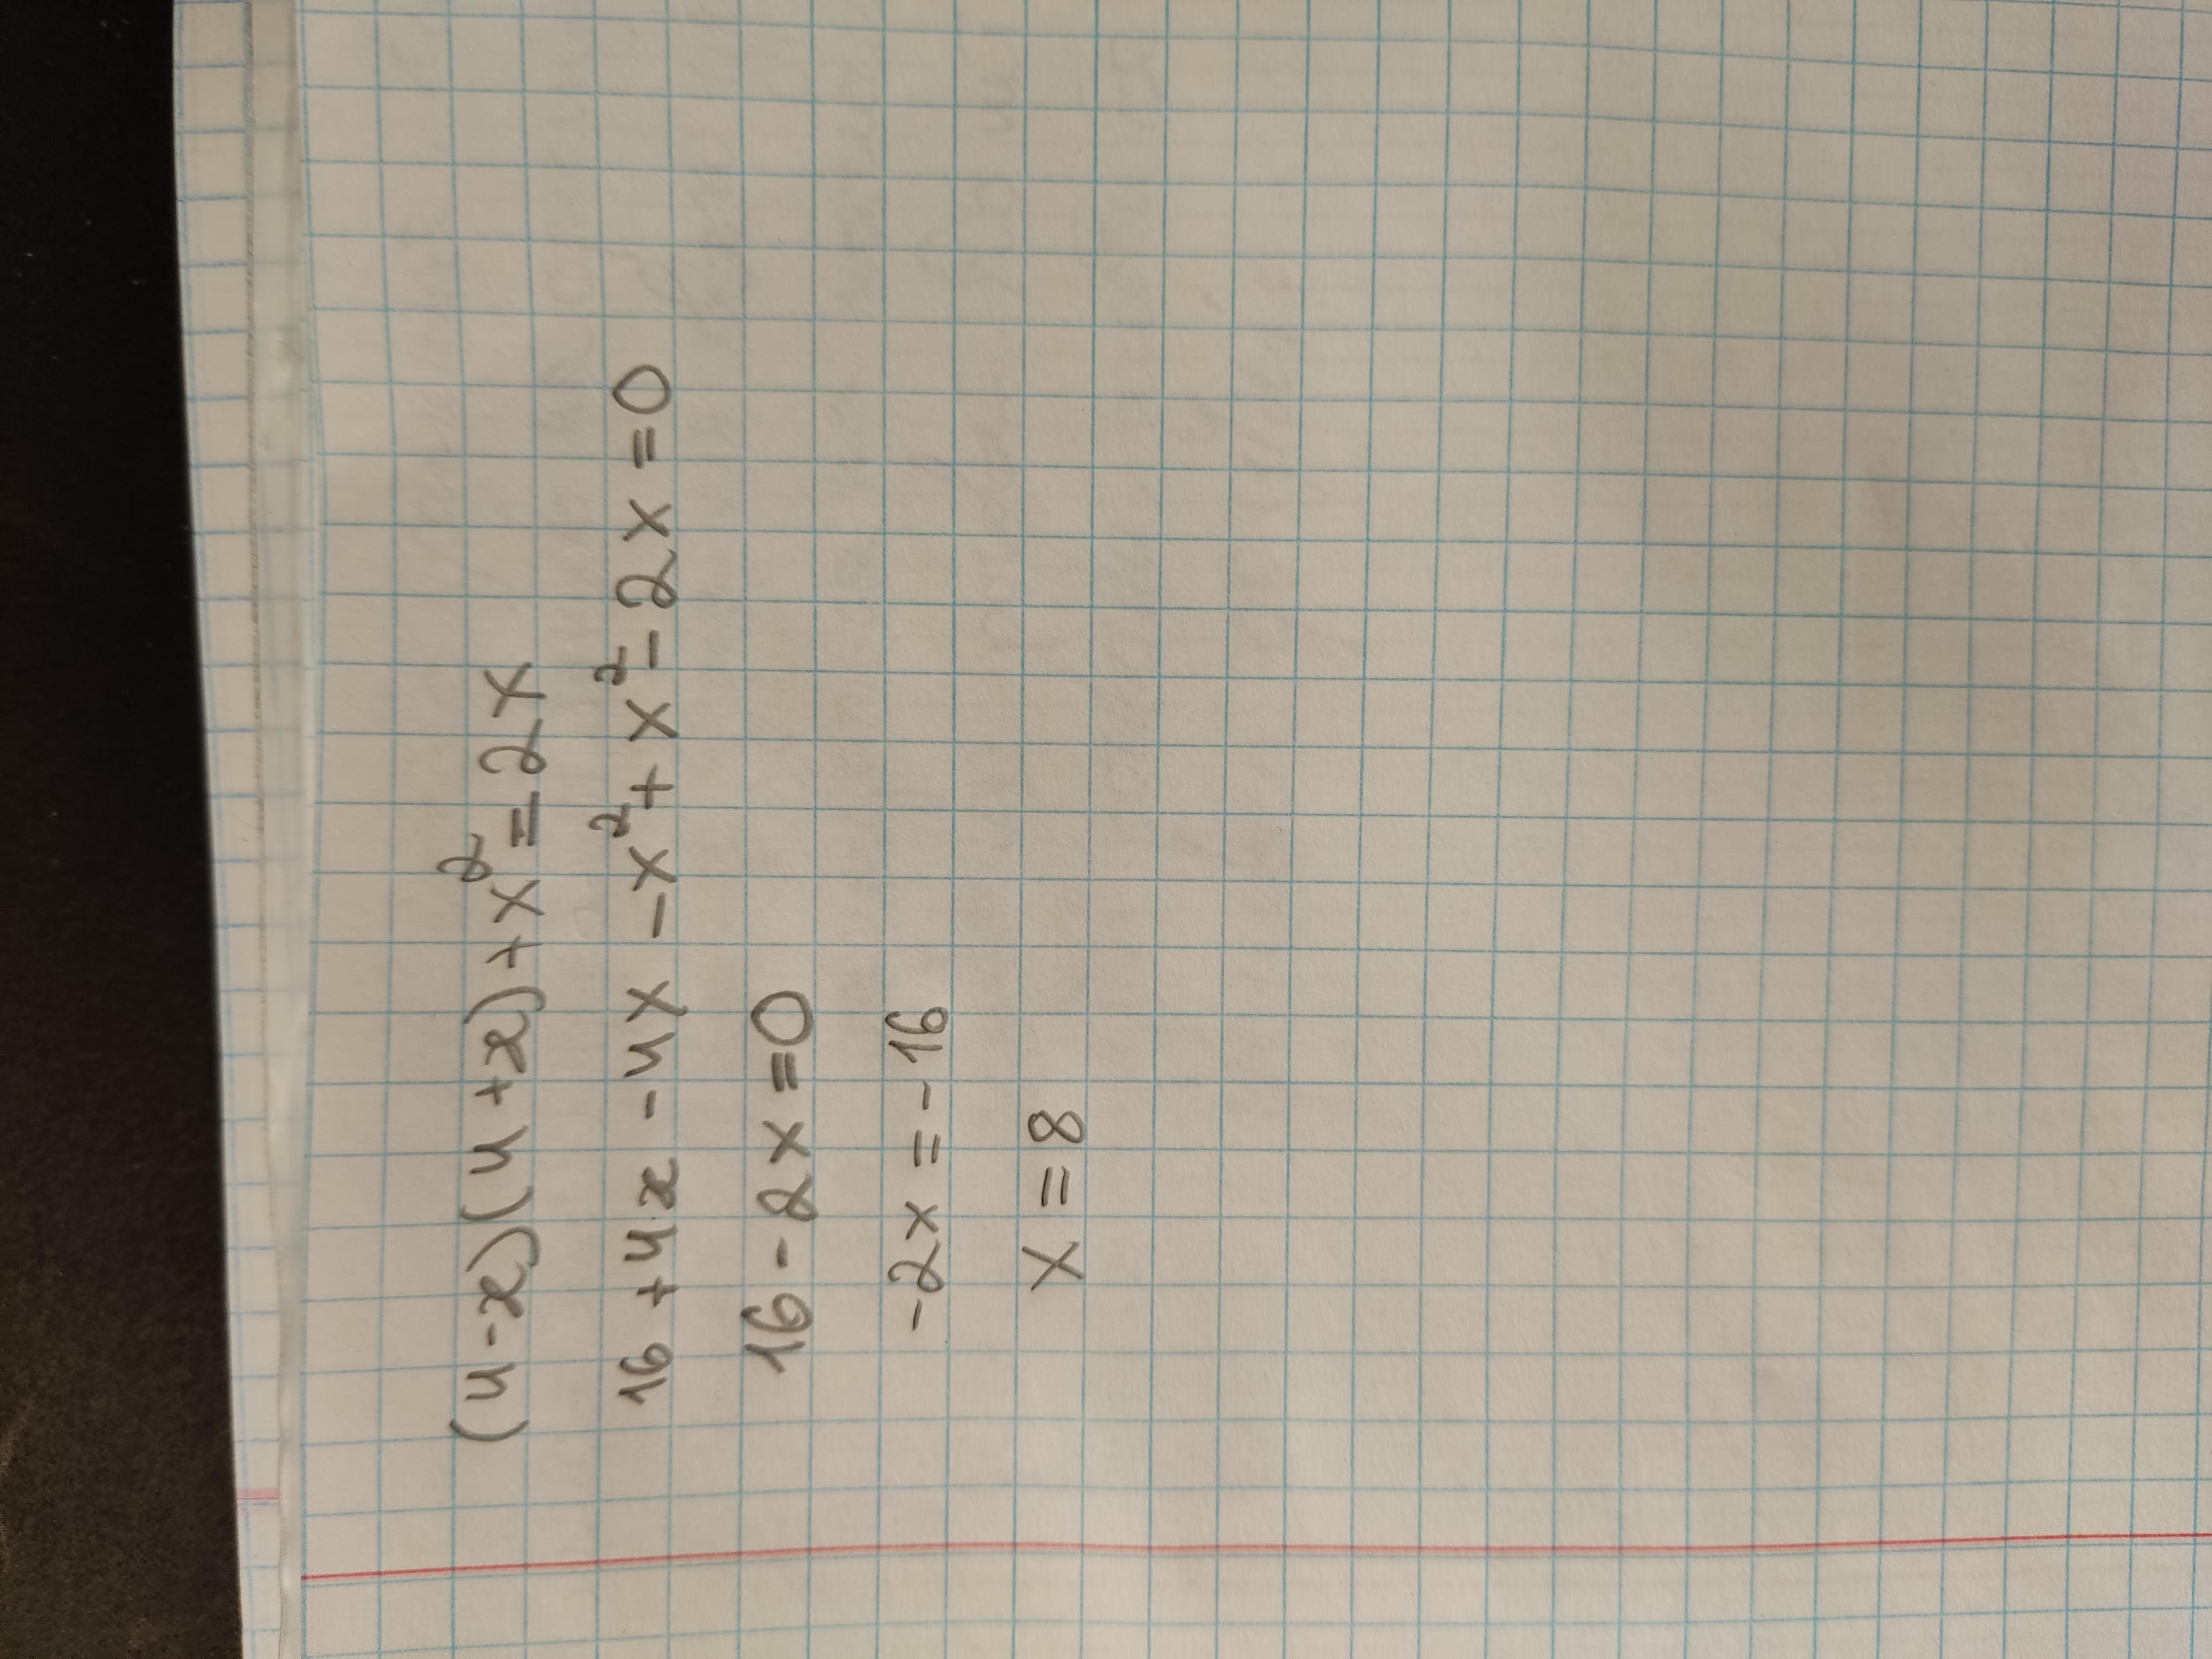 (4-x)(4+x)+x²=2x
16+4x-4x-x²+x²-2x=0
16-2x=0
-2x=-16
x=8